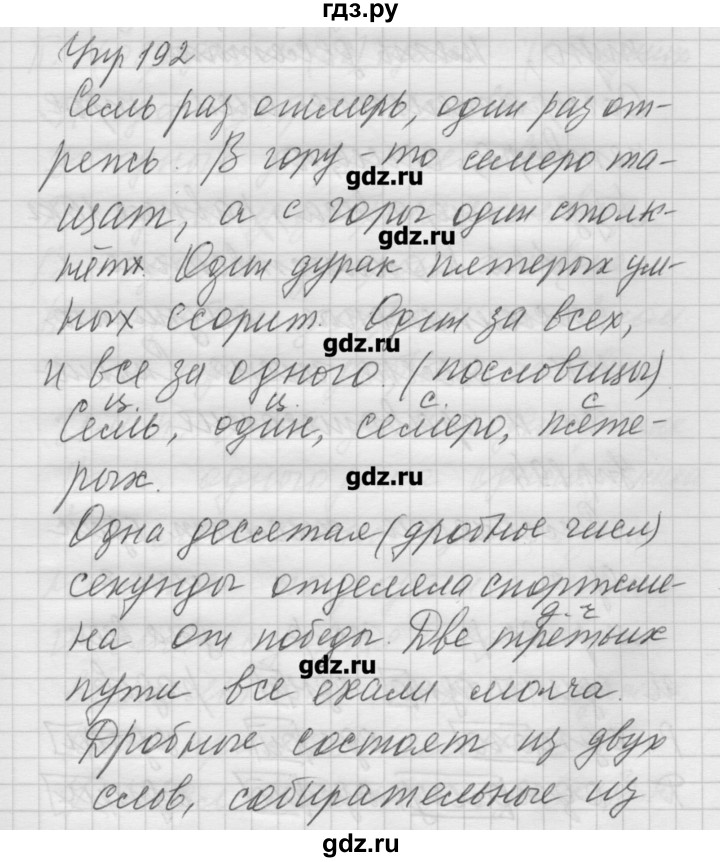 гдз.ру
Упр 192
Семь раз отмерь, один раз от-
режь. В гору-то семеро та-
gdz.ru
щат, а с горы один столк-
gdz.ru
нёт. Один дурак пятерых ум-
ных ссорит. Один за всех,
gdz.ru
и все за одного. (пословицы)
ц. ц. с. с
Семь, один, семеро, пяте-
рых.
gdz.ru
Одна десятая (дробное числ)
секунды отделяла спортсме-
д.ч
на от победы. Две третьих
gdz.ru
пути все ехали молча.
Дробные состоят из двух
слов, собирательные из
gdz.ru